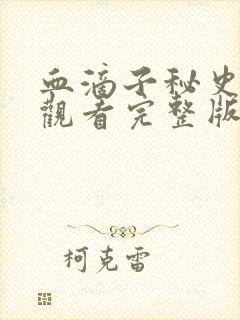 血滴子秘史
觀看完整版
柯克雷